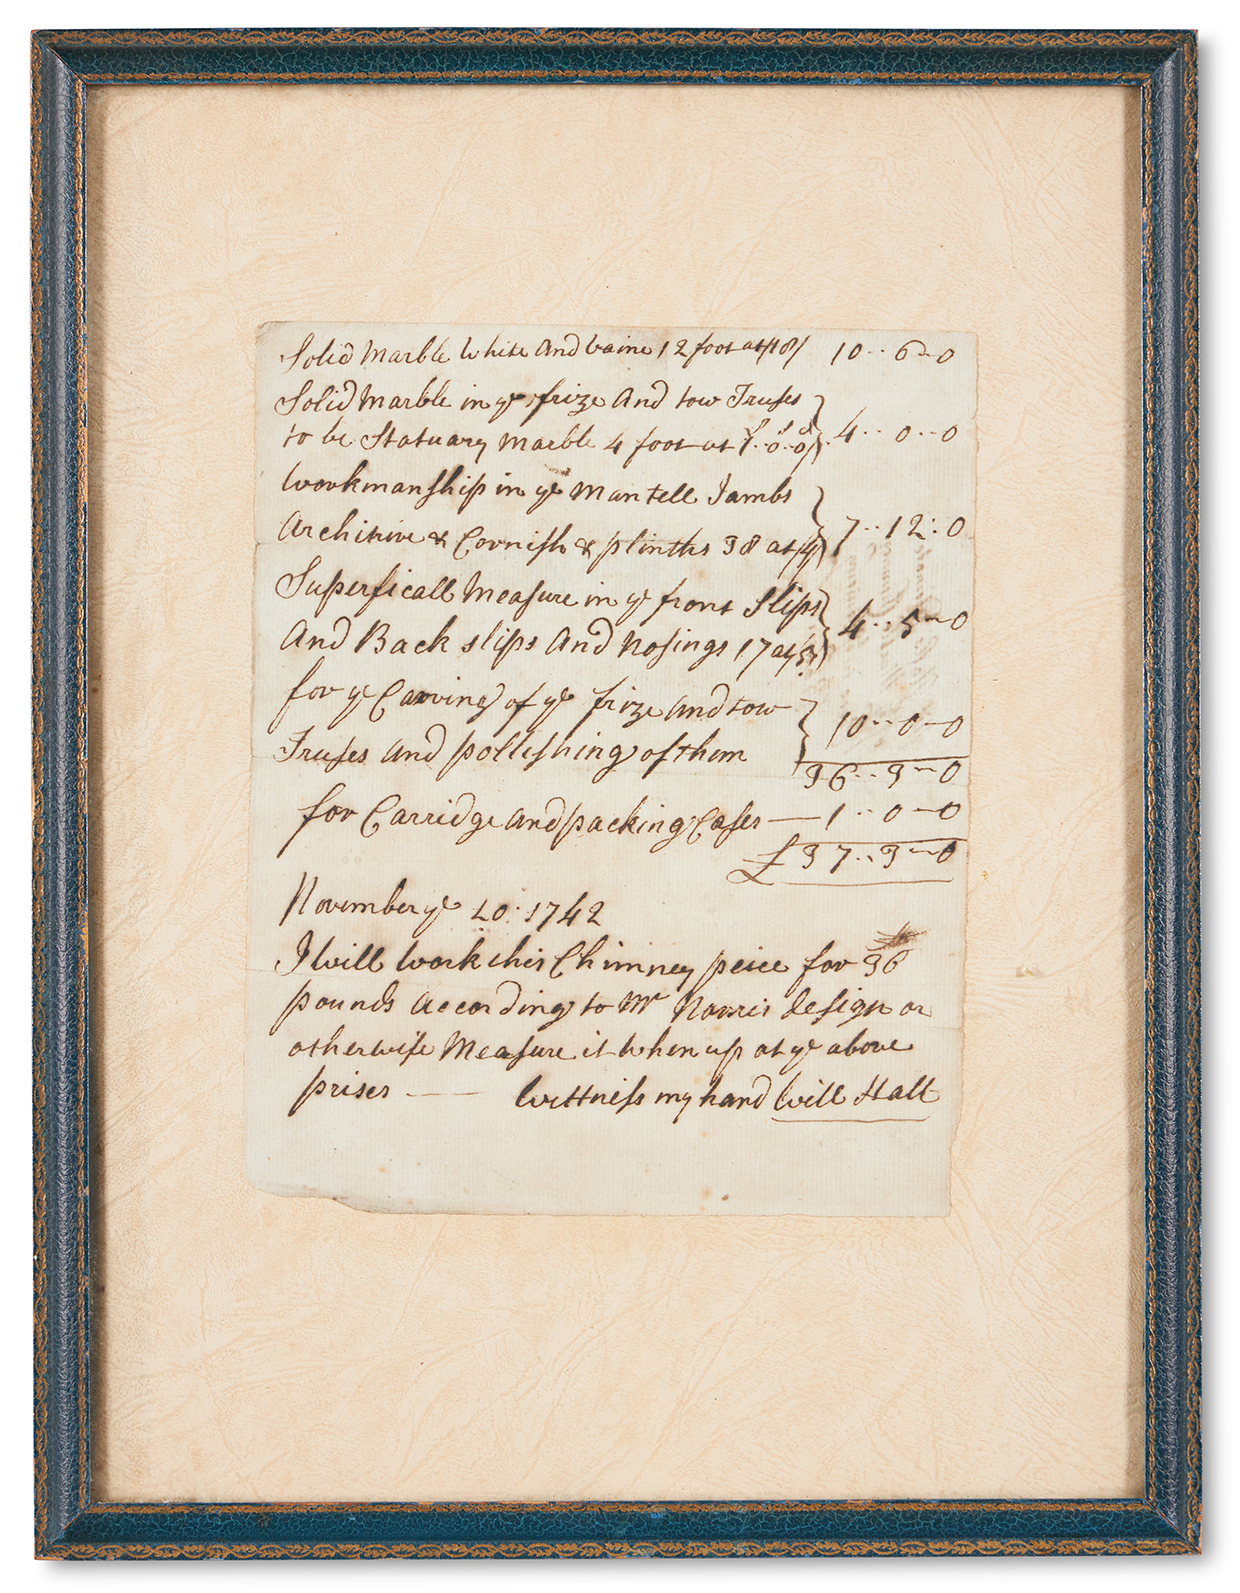 Solid Marble White And vaine 12 foot at /18/ 10 .. 6 - 0
Solid Marble in ye frize And tow Truses
to be Statuary Marble 4 foot at 1..0..0/ 4 .. 0 .. 0
Workmanship in ye Mantell Jambs
Architive & Cornish & plinths 38 at /4/ 7 .. 12 : 0
Superficall Measure in ye front Slips
And Back slips And Nosings 17 at /5/ 4 .. 5 - 0
for ye Carving of ye frize And tow 10 .. 0 - 0
Truses And pollishing of them
36 .. 3 - 0
for Carridge And packing Cases — 1 .. 0 - 0
£ 37 .. 3 - 0
November ye 20: 1742
I Will Work this Chimney peice for 36
pounds According to Mr Norris design or
otherwise Measure it When up at ye above
prises —— Wittness my hand Will Hall